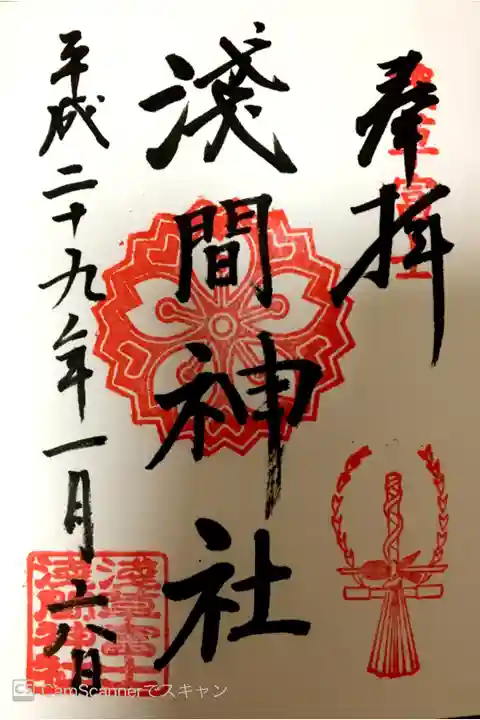 奉拝
淺間神社
平成二十九年一月六日
淺草富士
淺間神社
CamScannerでスキャン